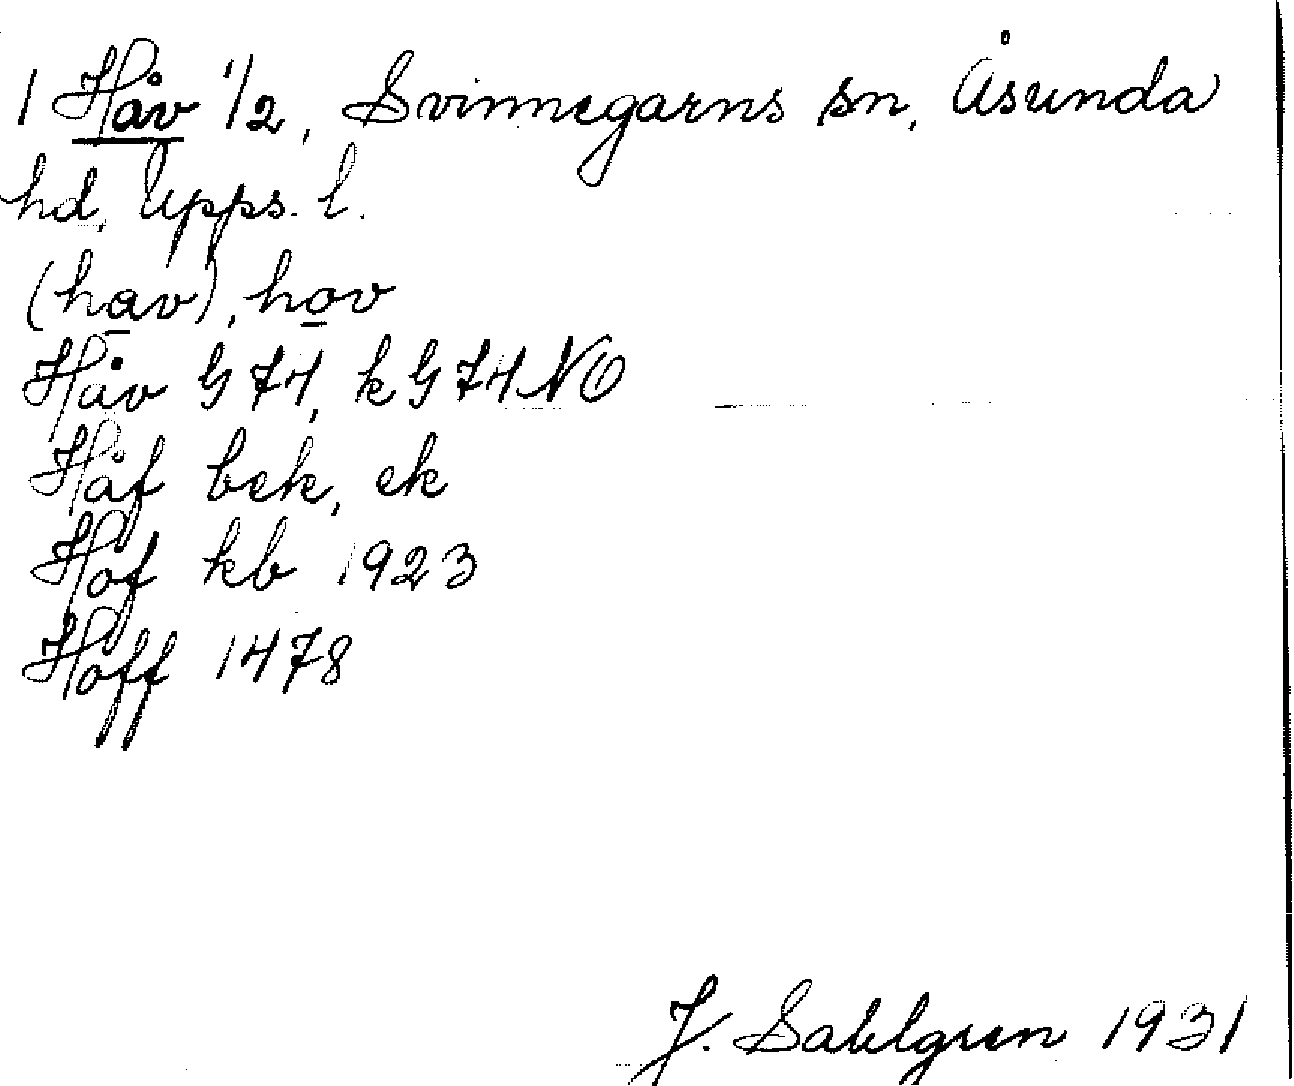 1 Håv 1/2, Svinnegarns sn, Åsunda
hd, Upps. l.
(hav), hov
Håv G 74, k G 74 NO
Håf bek, ek
Hof kb 1923
Hoff 1478
J. Sahlgren 1931